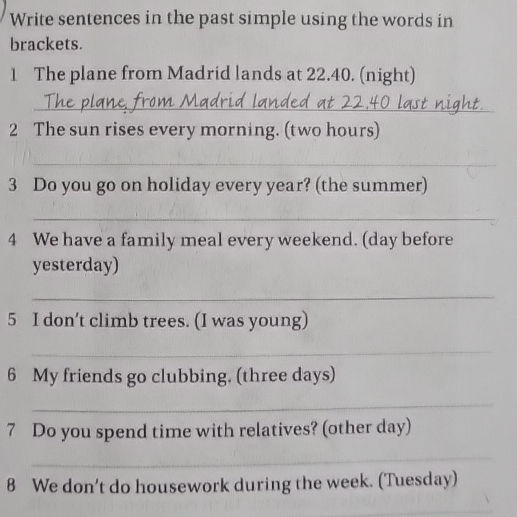 Write sentences in the past simple using the words in
brackets.
1 The plane from Madrid lands at 22.40. (night)
The plane from Madrid landed at 22.40 last night.
2 The sun rises every morning. (two hours)
3 Do you go on holiday every year? (the summer)
4 We have a family meal every weekend. (day before
yesterday)
5 I don't climb trees. (I was young)
6 My friends go clubbing. (three days)
7 Do you spend time with relatives? (other day)
8 We don't do housework during the week. (Tuesday)